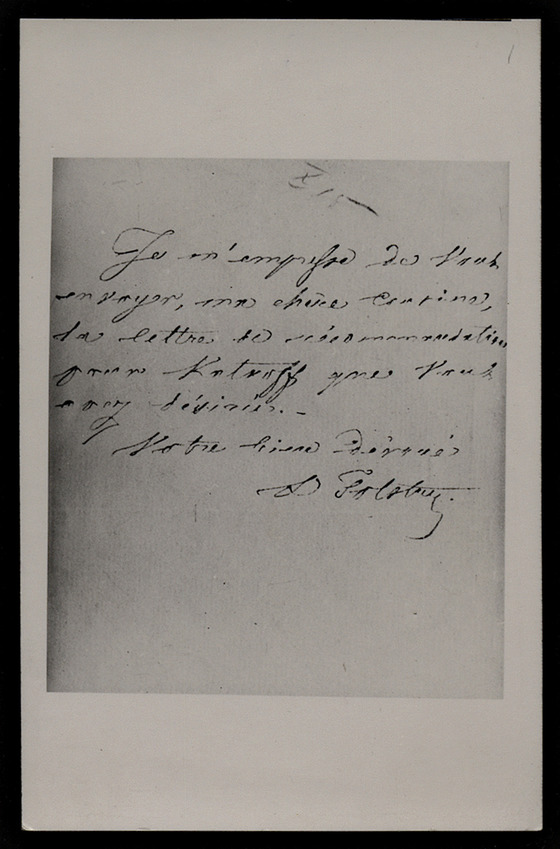 Je m'empresse de Vous
envoyer, ma chère Cousine,
la lettre de récommandation
pour Katkoff que Vous
avez désirée. _
Votre bien dévoué
A Tolstoy.